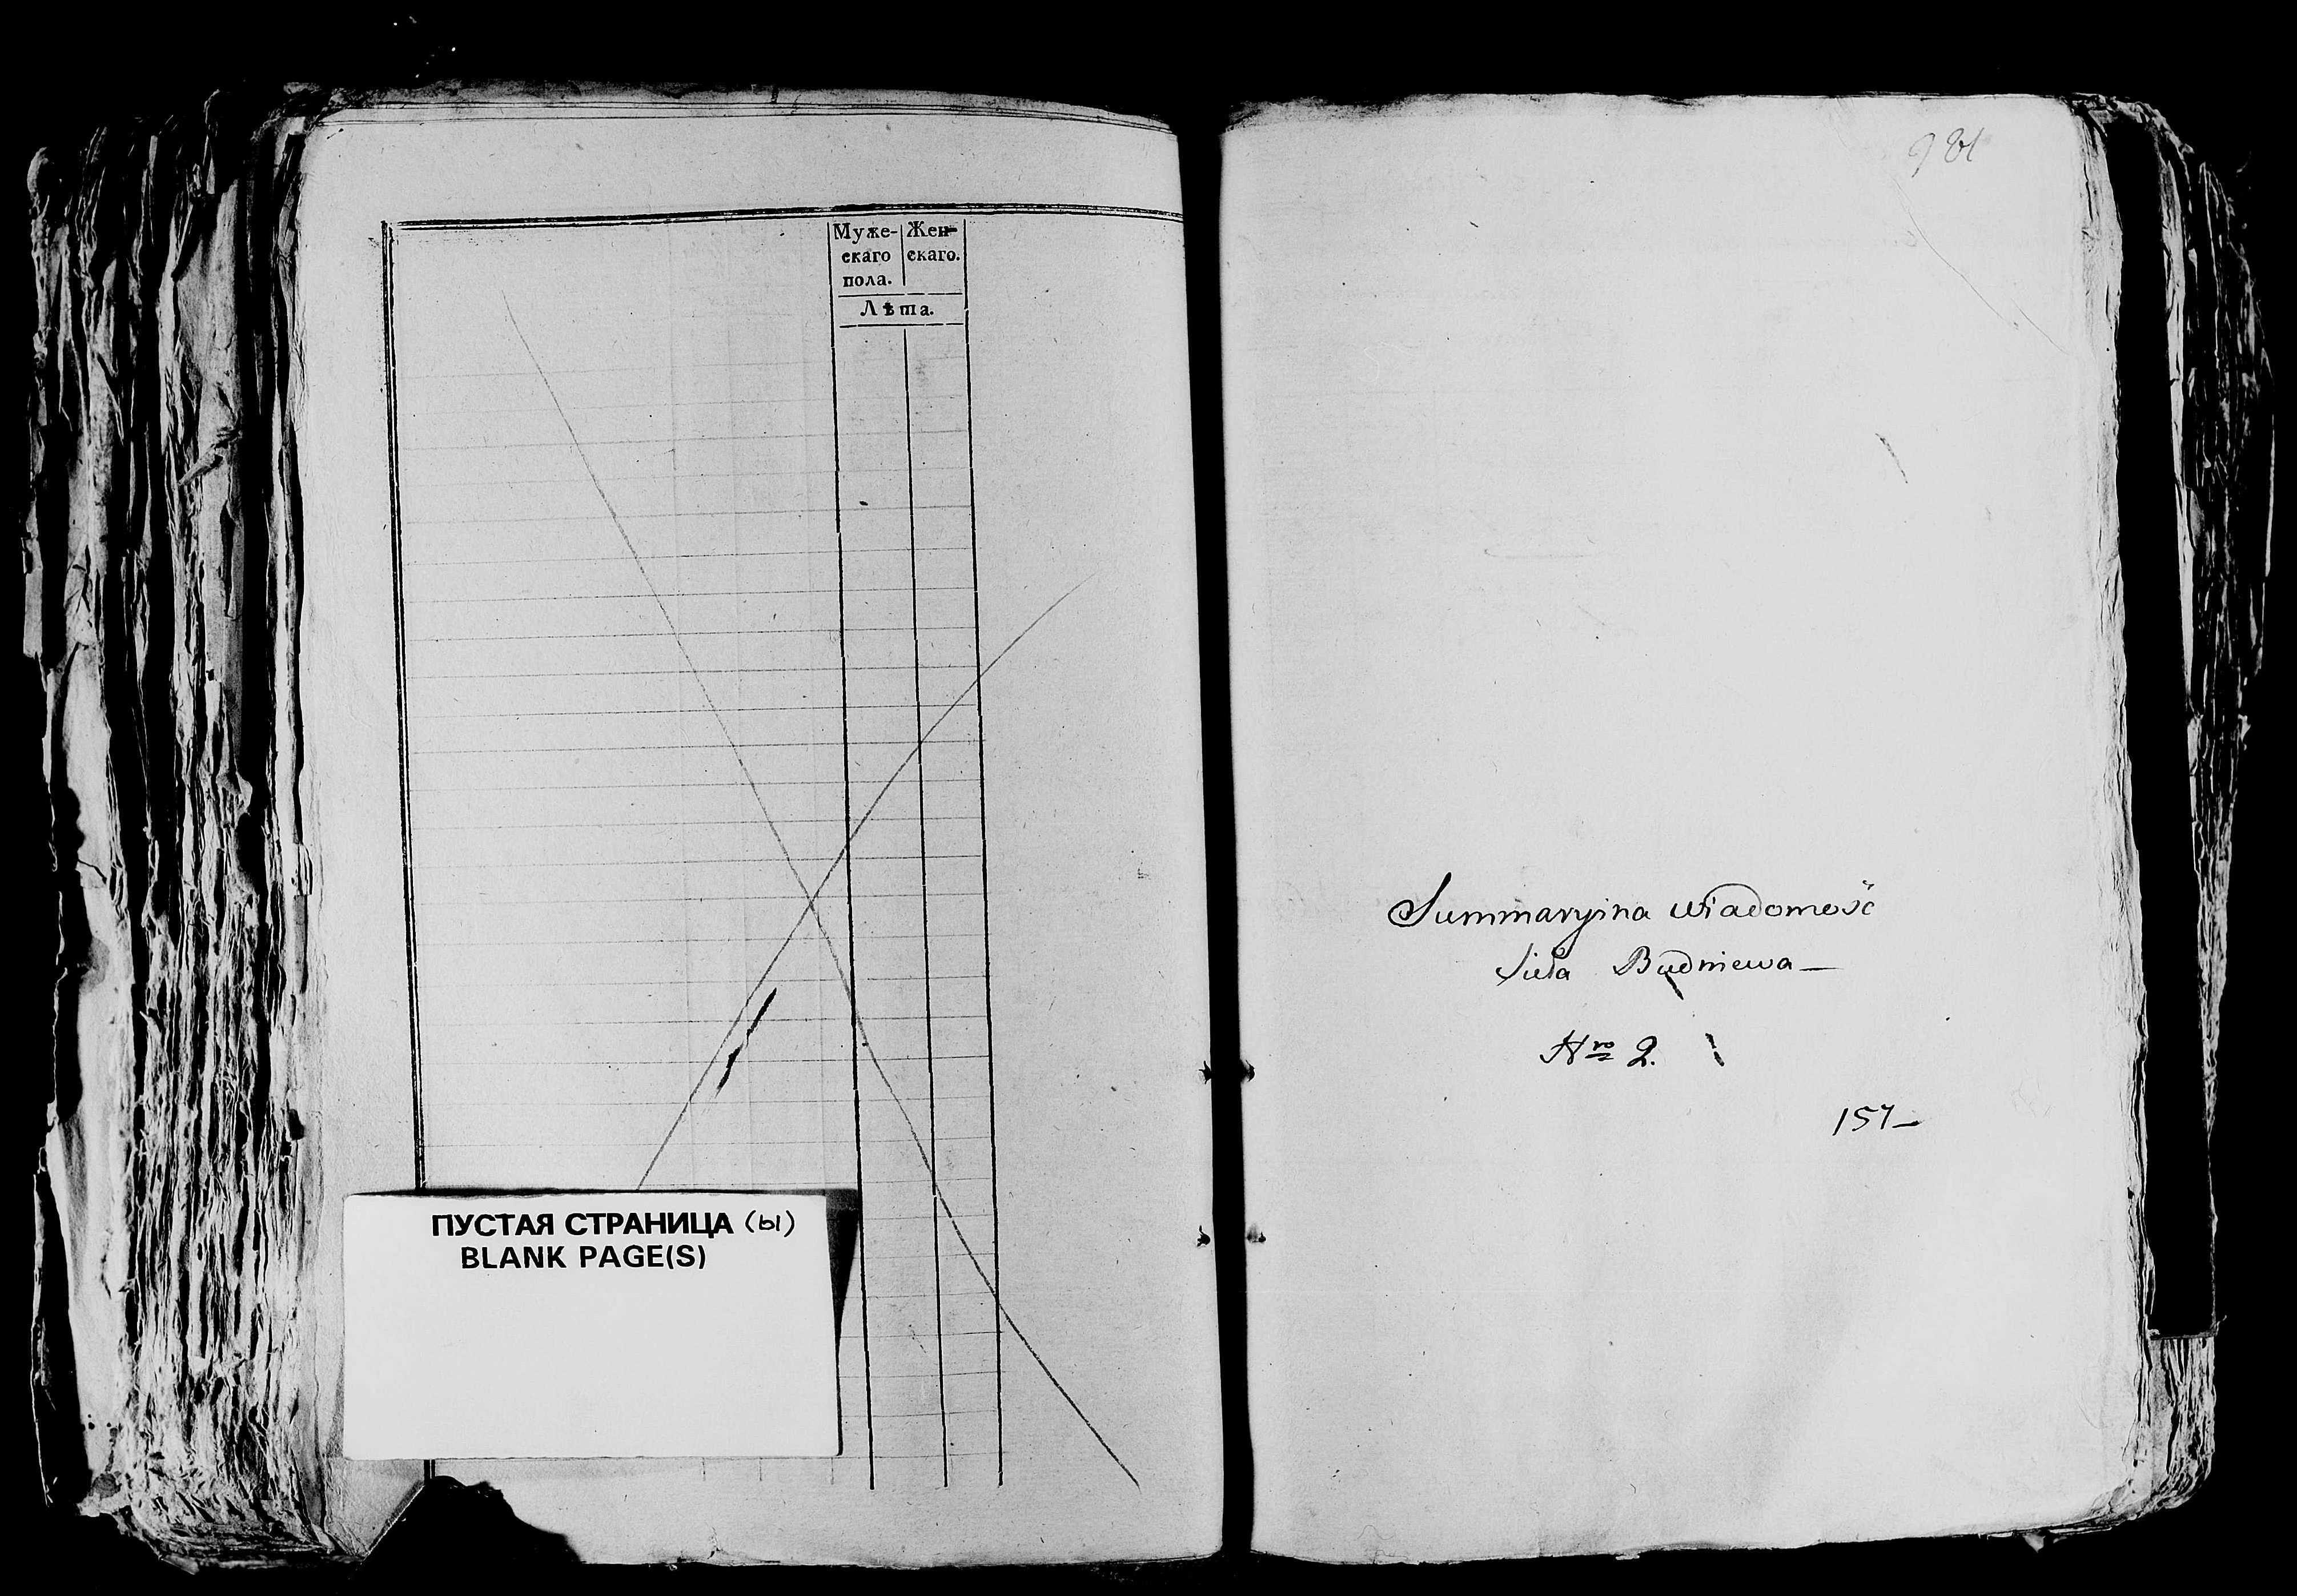 Муже-
скаго
пола.
Жен-
скаго.
Лѣта.
ПУСТАЯ СТРАНИЦА (ы)
BLANK PAGE(S)
Summaryina wiadomość
Sieła Budniewa—
Nro 2.
157—